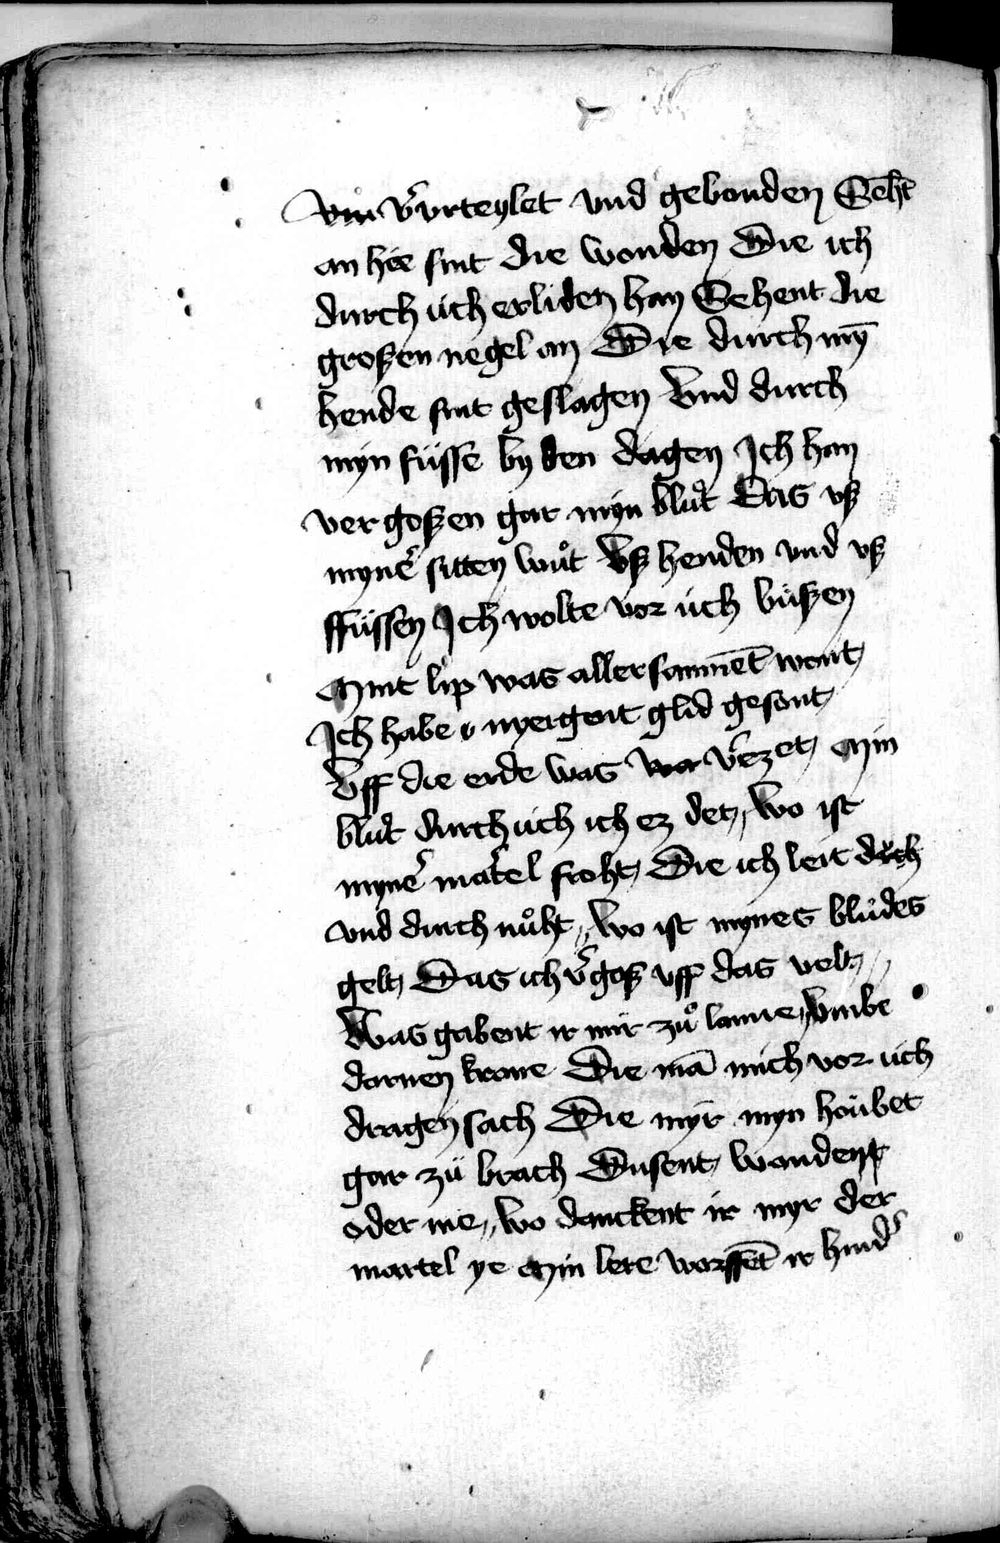 v̾urteylet vnd gebonden Seht̄
an hie sint die wonden Die ich
durch üch erliden han Sehent die
groszen negel an Die durch mȳ
hende sint geslagen Vnd durch
myn füsse by den dagen Ich han
vergoszen gar myn blůt Das vsz
myne̾ sitten wůt Vsz henden vnd vsz
ffüssen Ich wolte vor üch büszen
Mīnt lip was allersamet̄ wont
Ich habe nyergent glid gesont
Vff die erde was v̾rezet Min
blůt durch üch ich ez det wo ist
myne̾ mat̾el froht Die ich leit
vnd durch nůht wo ist mynes blůdes
gelt Das ich v̾gosz vff das velt
Was gabent ir mir zů lane Vmbe
dornen krone Die mā mich vor üch
dragen sach Die myr myn houbet
gar zü brach Dusent wonden
oder me wo danckent ir myr der
martel ye Min lere worffēt ir hind̾